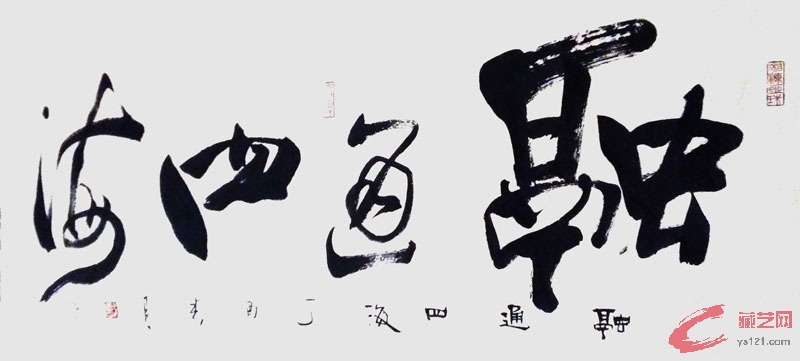 融通四海
融通四海丁酉
藏艺网
ys121.com